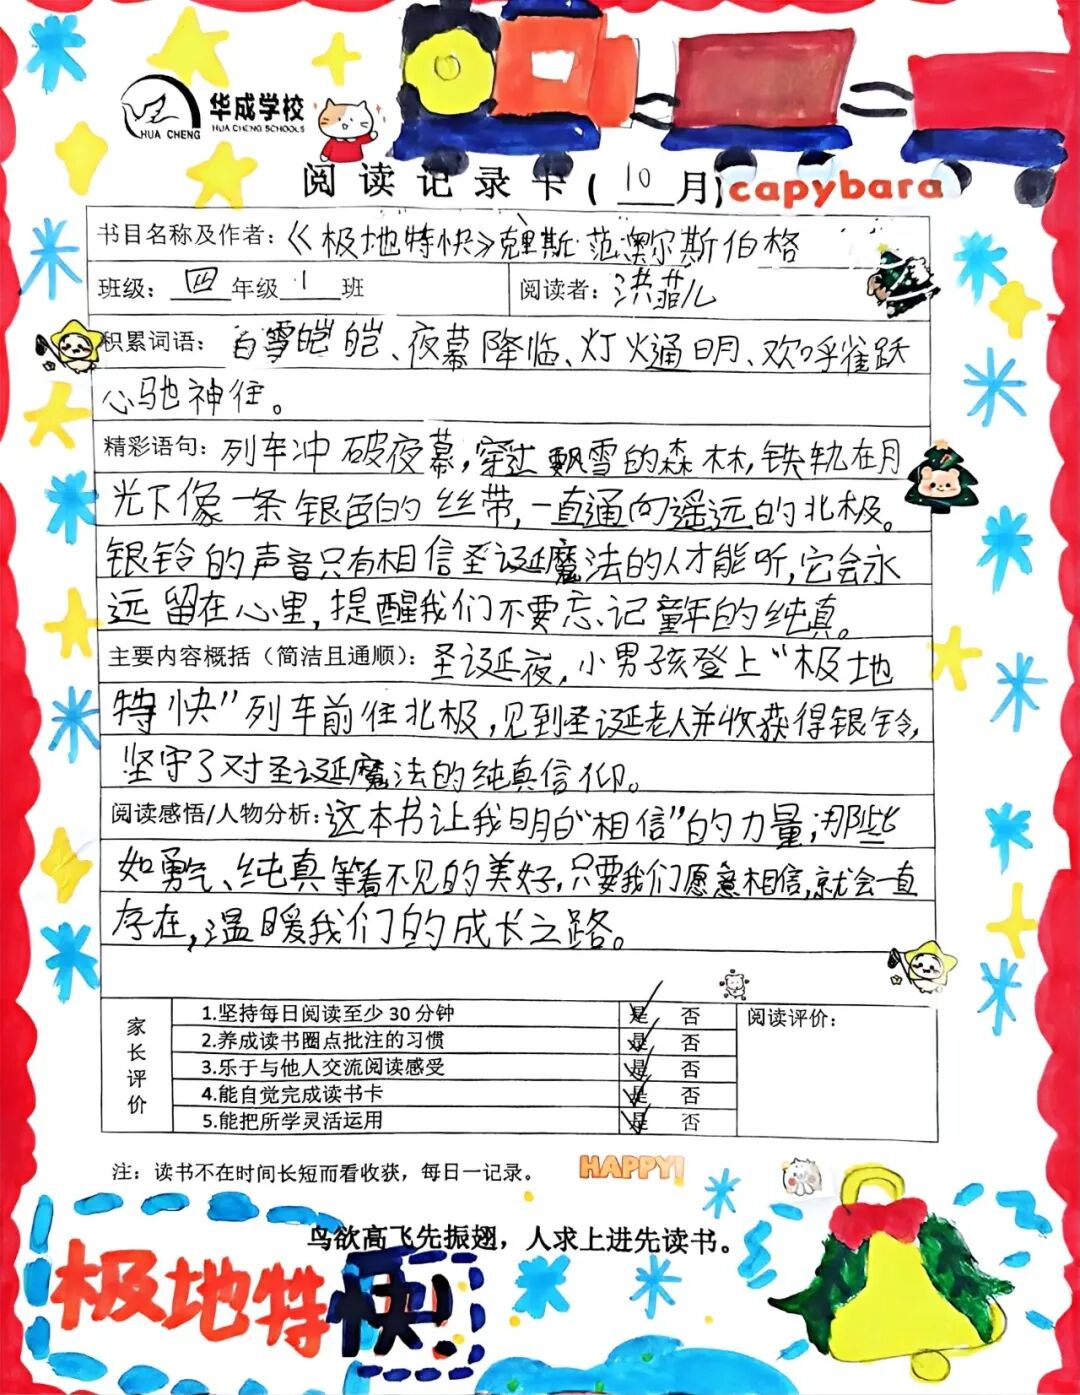 华成学校
HUA CHENG
HUA CHENG SCHOOLS
阅读记录卡(10月)
capybara
书目名称及作者:《极地特快》克里斯·范·澳尔斯伯格
班级:四年级1班
阅读者:洪菲儿
积累词语:白雪皑皑、夜幕降临、灯火通明、欢呼雀跃
心驰神往。
精彩语句:列车冲破夜幕,穿过飘雪的森林,铁轨在月
光下像一条银色的丝带,一直通向遥远的北极。
银铃的声音只有相信圣诞魔法的人才能听,它会永
远留在心里,提醒我们不要忘记童年的纯真。
主要内容概括(简洁且通顺):圣诞夜,小男孩登上“极地
特快”列车前往北极,见到圣诞老人并收获得银铃,
坚守了对圣诞魔法的纯真信仰。
阅读感悟/人物分析:这本书让我明白“相信”的力量;那些
如勇气、纯真等看不见的美好,只要我们愿意相信,就会一直
存在,温暖我们的成长之路。
家长评价
1.坚持每日阅读至少30分钟 是 否
2.养成读书圈点批注的习惯 是 否
3.乐于与他人交流阅读感受 是 否
4.能自觉完成读书卡 是 否
5.能把所学灵活运用 是 否
阅读评价:
注:读书不在时间长短而看收获,每日一记录。
HAPPY!
鸟欲高飞先振翅,人求上进先读书。
极地特快!